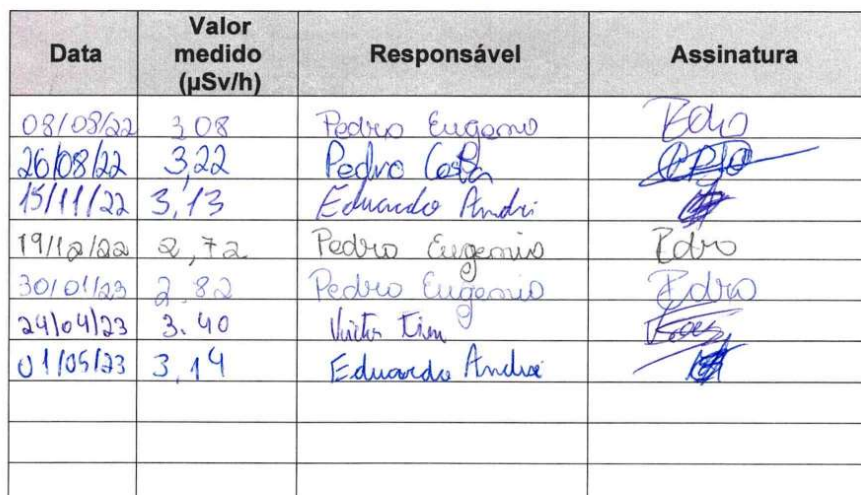 Data Valor medido (µSv/h) Responsável Assinatura
08/08/22 3,08 Pedro Eugenio Edro
26/08/22 3,22 Pedro Costa
15/11/22 3,13 Eduardo André
19/12/22 2,72 Pedro Eugenio Edro
30/01/23 2.82 Pedro Eugenio Edro
24/04/23 3.40 Victor
01/05/23 3,14 Eduardo André